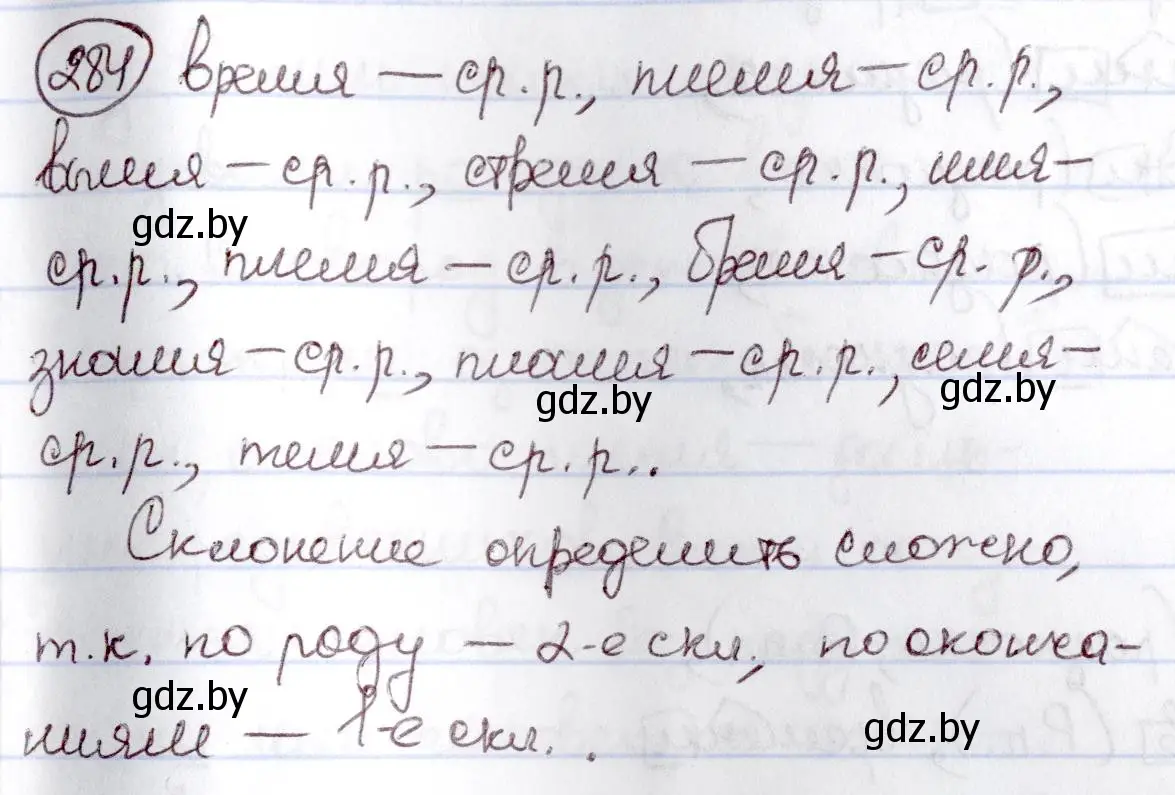 284 время – ср.р., племя – ср.р.,
вымя – ср.р., стремя – ср.р., имя –
gdz.by
ср.р., пламя – ср.р., Бремя – ср.р.,
знамя – ср.р., пламя – ср.р., семя –
gdz.by gdz.by
ср.р., темя – ср.р..
Склонение определить сложно,
т.к. по роду – 2-е скл., по оконча-
gdz.by
ниям – 1-е скл..
gdz.by